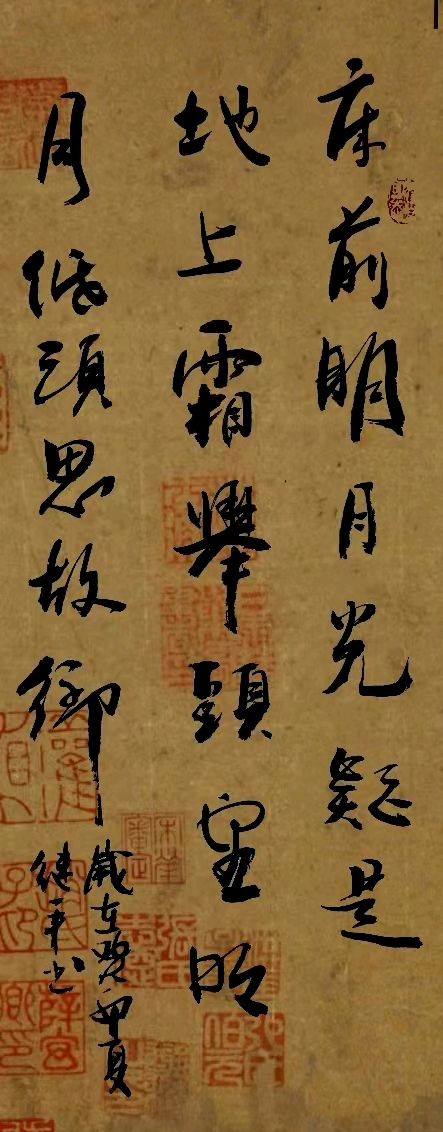 床前明月光疑是
地上霜舉頭望明
月低頭思故鄉
歲在癸卯夏
继平书